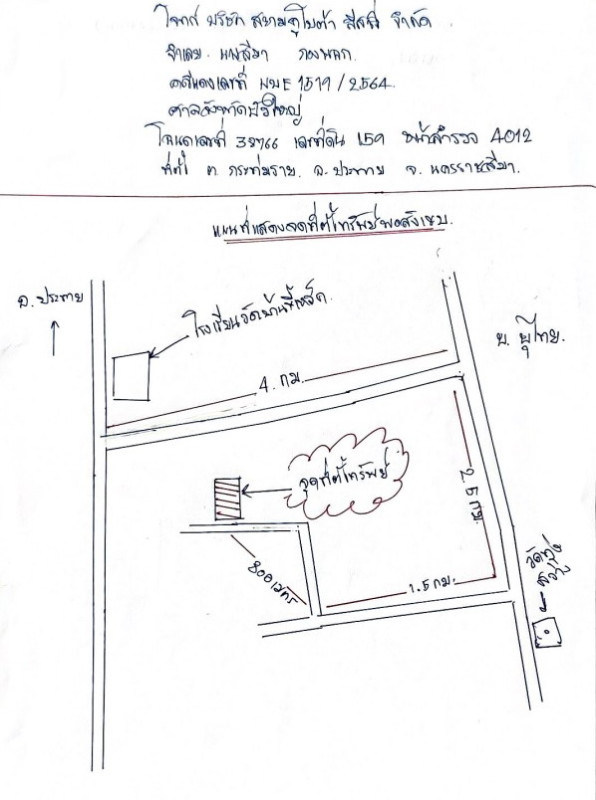 โจทก์ บริษัท สยามคูโบต้า ลีสซิ่ง จำกัด
จำเลย นาง กองพลก.
คดีแดงเลขที่ ผบE 1519/2564
ศาลจังหวัดบัวใหญ่
โฉนดเลขที่ 39766 เลขที่ดิน 159 หน้าสำรวจ 4012
ที่ตั้ง ต. กระทุ่มราย อ. ประทาย จ. นครราชสีมา.
แผนที่แสดงจุดที่ตั้งทรัพย์พอสังเขป.
อ. ประทาย
โรงเรียนวัดบ้าน
บ.
4. กม.
จุดที่ตั้งทรัพย์
2.5 กม.
800 เมตร
1.5 กม.
วัด